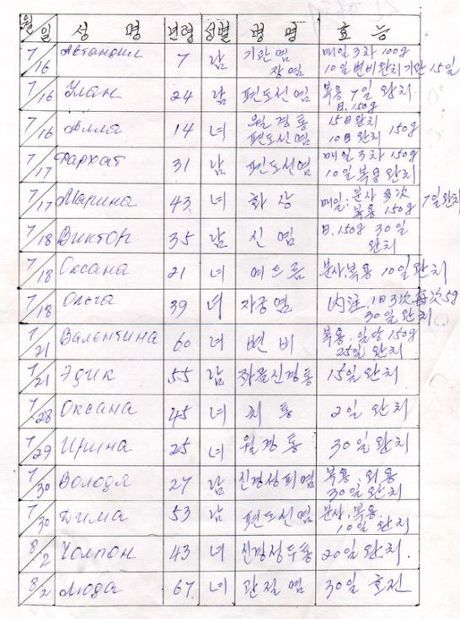 월/일 성 명 년령 성별 병 명 효 능
7/16 Автандил 7 남 기관염 장염 매일 3차 100g
10일 변비완치 기관 15일
7/16 Улан 24 남 편도선염 복용 7일 완치
日. 150g
7/16 Алла 14 녀 월경통 편도선염 15日완치
10日 완치 150g
7/17 Фархат 31 남 편도선염 매일 3차 150g
10일 복용 완치
7/17 Марина 43 녀 화 상 매일: 분사 多次
복용 150g 7일완치
7/18 Виктор 35 남 신 염 日. 150g 30일
완치
7/18 Оксана 21 녀 여드름 분사.복용 10일 완치
7/18 Ольга 39 녀 자궁염 内注. 1日3次
30일 완치
7/21 Валентина 60 녀 변 비 복용. 일당 150g
25일 완치
7/21 Эдик 55 남 좌골신경통 15일 완치
7/28 Оксана 45 녀 치 통 2일 완치
7/29 Ирина 25 녀 월경통 30일 완치
7/30 Володя 27 남 신경성피염 복용. 외용
30일 완치
7/30 Дима 53 남 편도선염 분사. 복용.
10일 완치
8/2 Чолпон 43 녀 신경성두통 20일 완치.
8/2 Люда 67 녀 관절염 30일 호전